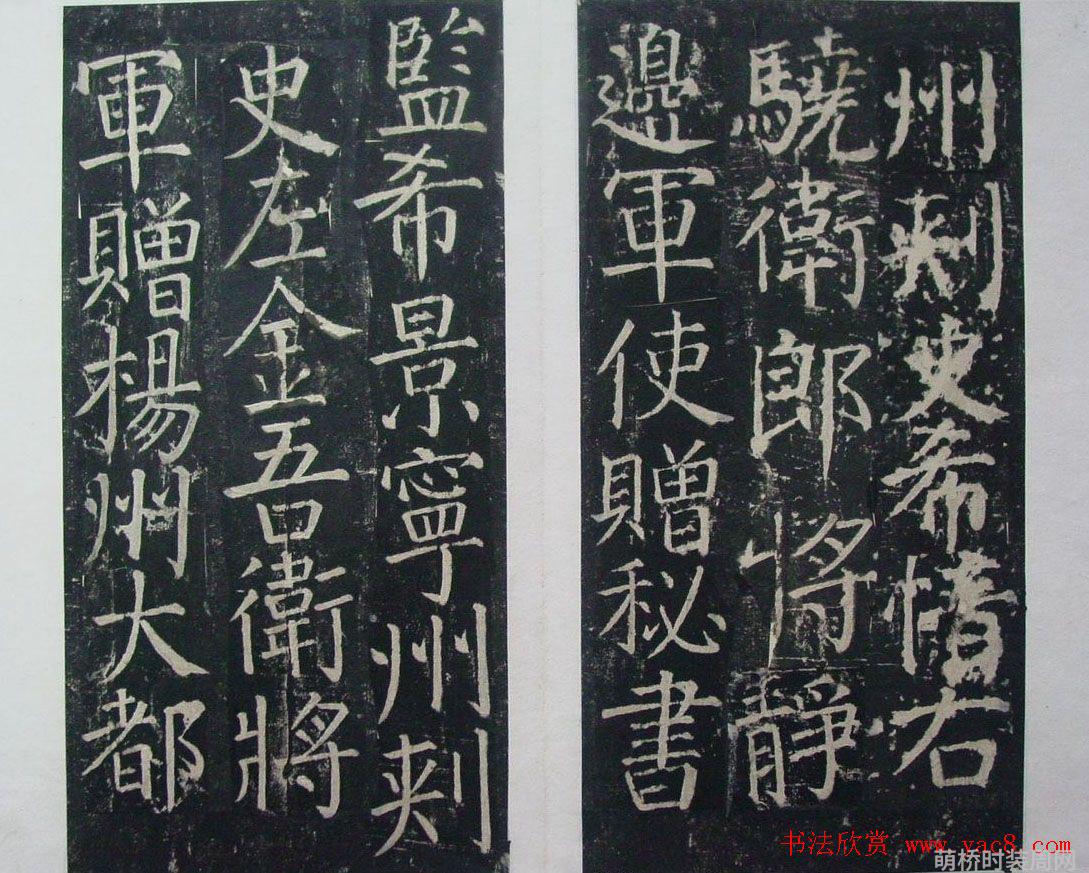 州刺史希愔右
驍衛郎將静
邊軍使贈秘書
監希景寧州刺
史左金吾衛將
軍贈楊州大都
书法欣赏 www.yac8.com
萌桥时装周网